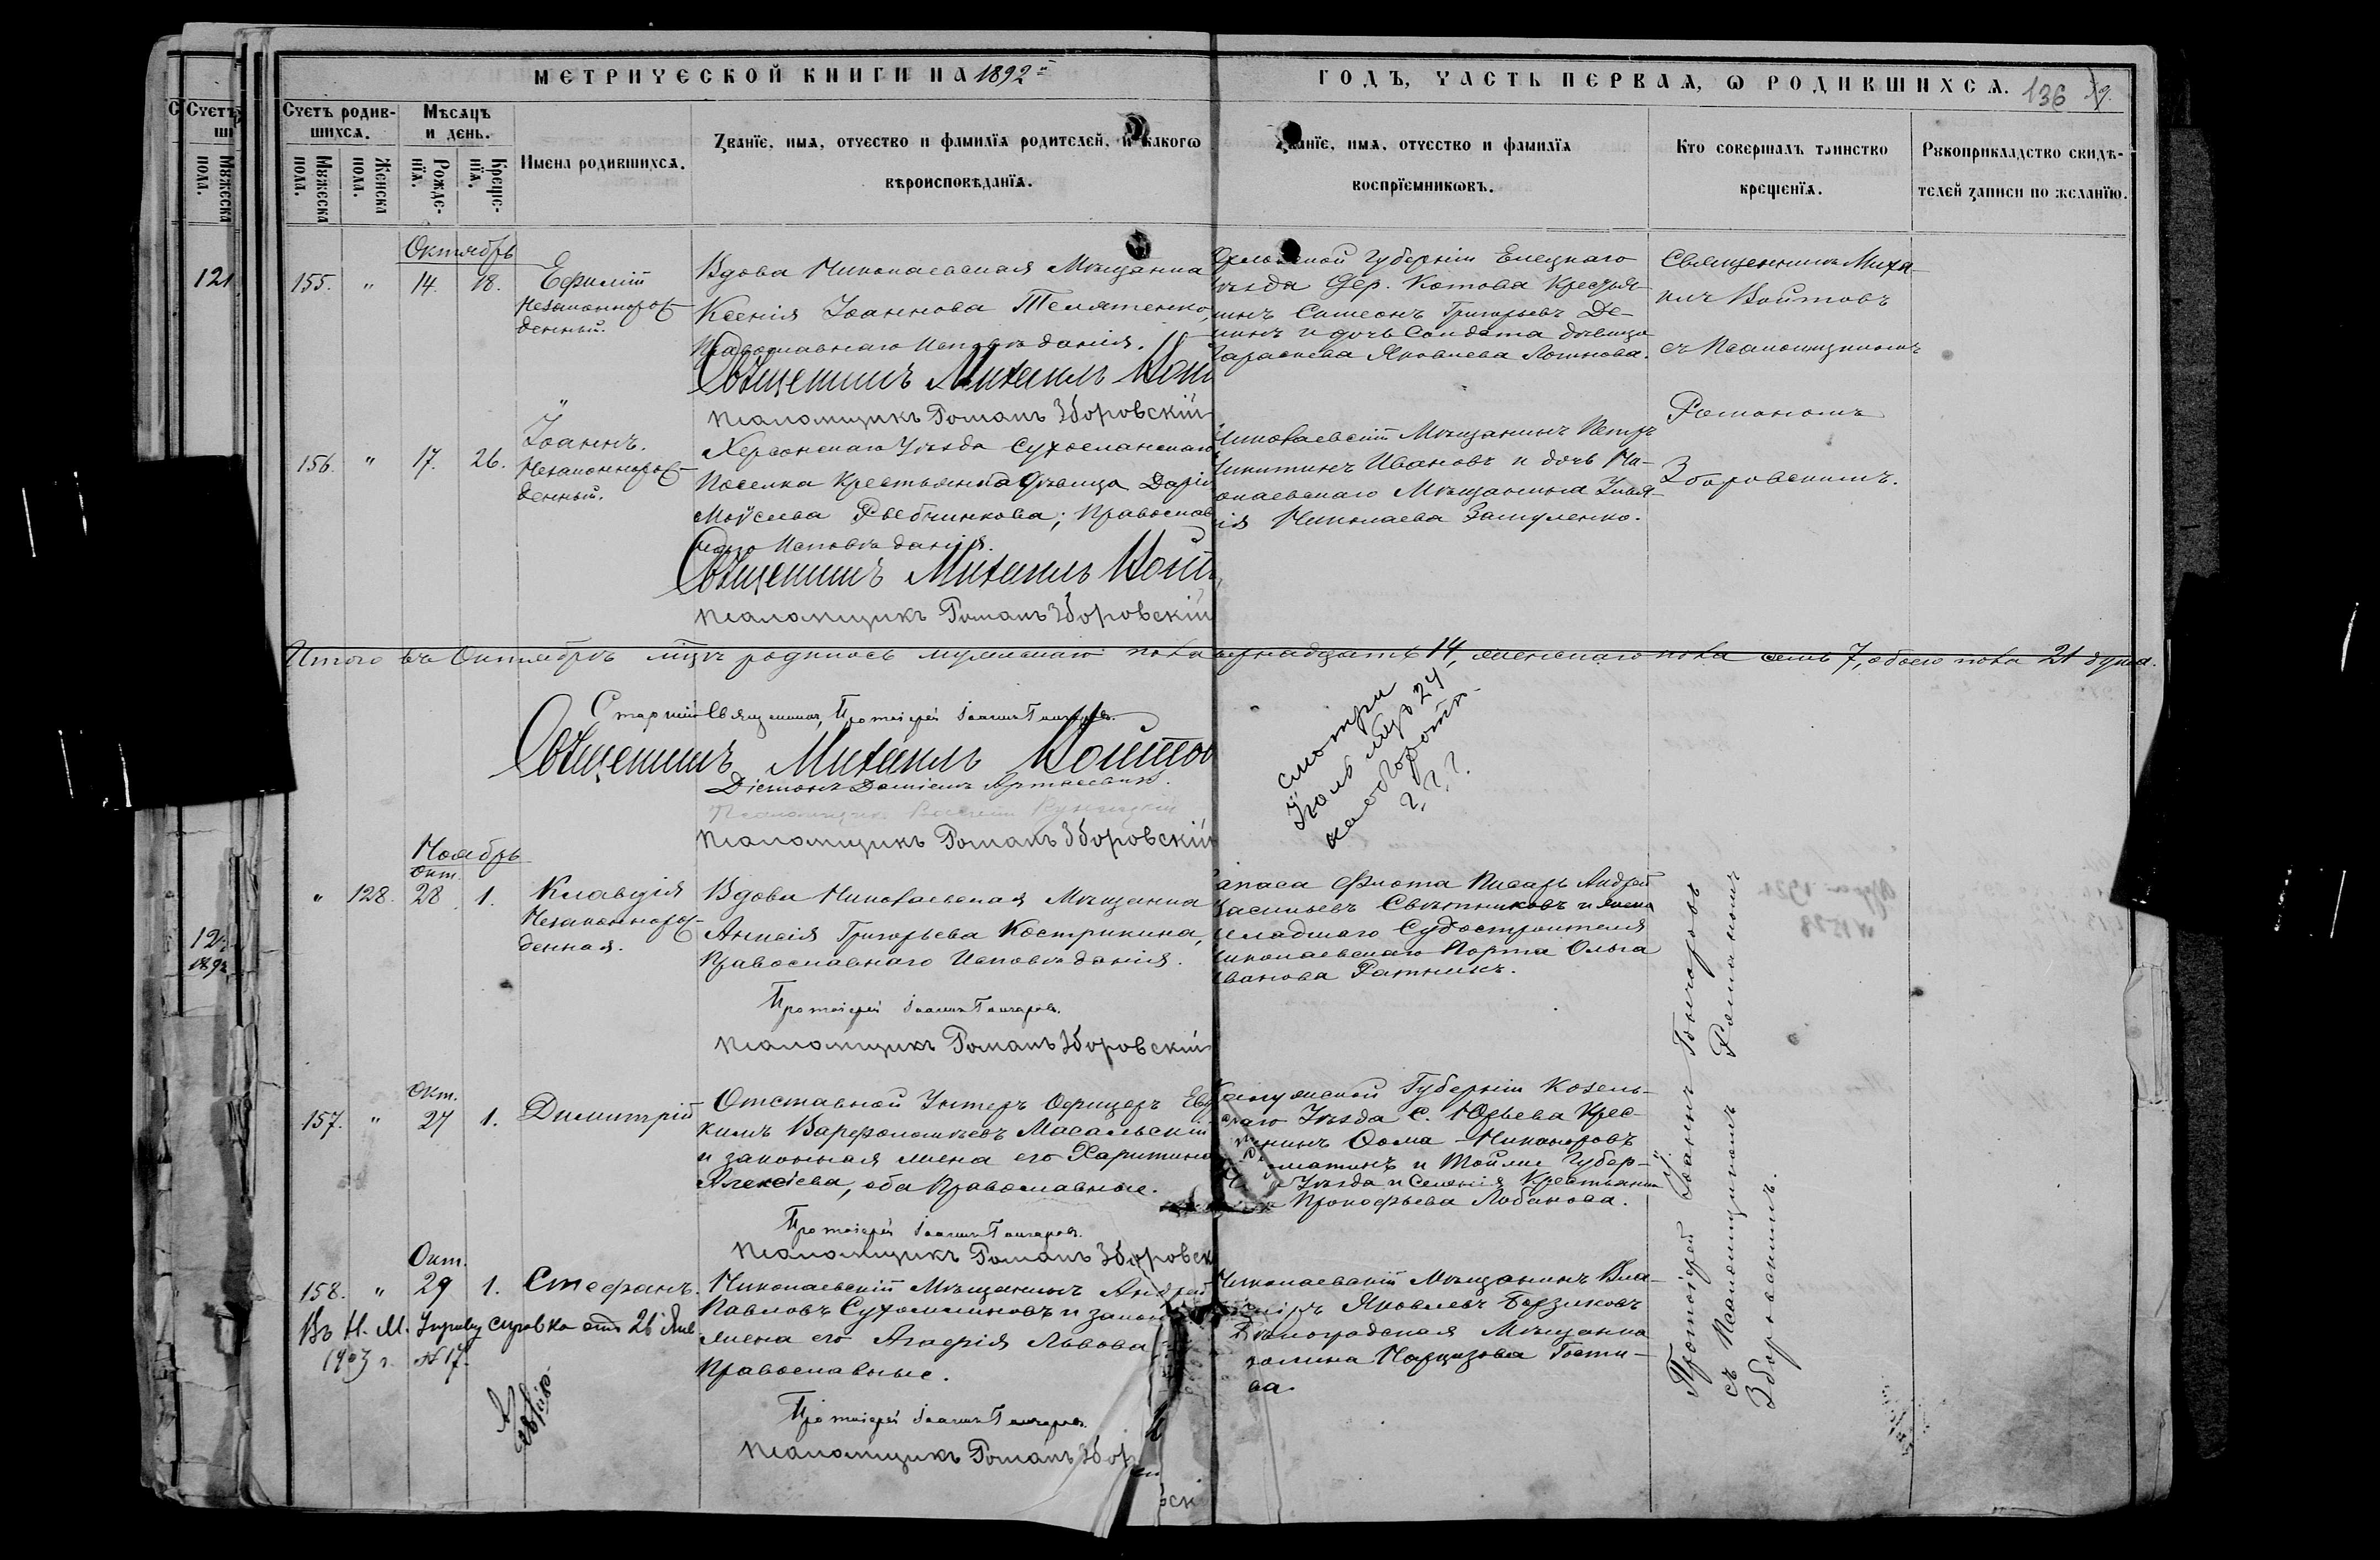 МЕТРИЧЕСКОЙ КНИГИ НА 1892й
ГОДЪ, ЧАСТЬ ПЕРВАЯ, Ѡ РОДИВШИХСЯ. 136
Счетъ родив-
шихся.
Мѣсяцъ
и день.
Мужеска
пола.
Женска
пола.
Рожде-
нія.
Креще-
нія.
Имена родившихся.
Званіе, имя, отчество и фамилія родителей, и какогѡ
вѣроисповѣданія.
Званіе, имя, отчество и фамилія
воспріемникѡвъ.
Кто совершалъ таинство
крещенія.
Рукоприкладство свидѣ-
телей записи по желанію.
Октябрь
121
155. " 14. 18.
Ефимій
Незаконнорож-
денный.
Вдова Николаевская Мѣщанка
Ксенія Іоаннова Телятенко,
Православнаго Исповѣданія.
Священникъ Михаилъ Войт
Псаломщикъ Романъ Зборовскій
Орловской Губерніи Елецкаго
уѣзда Дер. Котова Крестья-
нинъ Симеонъ Григорьевъ Де-
и дочь Солдата дѣвица
Параскева Яковлева
Священникъ Миха-
илъ Войтовъ
съ Псаломщикомъ
Романомъ
Зборовскимъ.
156. " 17. 26.
Іоаннъ.
Незаконнорож-
денный.
Херсонскаго Уѣзда
Поселка Крестьянка дѣвица Дарія
Моѵсеева Рыбчинкова; Православ
наго Исповѣданія.
Священникъ Михаилъ Войт
Псаломщикъ Романъ Зборовскій
Николаевскій Мѣщанинъ Петръ
Никитинъ Ивановъ и дочь Ни-
колаевскаго Мѣщанина
Николаева
Итого въ Октябрѣ мцѣ родилось мужескаго пола четырнадцать 14, женскаго пола семь 7, обоего пола 21 душа.
Старшій Священникъ, Протоіерей Іоаннъ Гончаровъ.
Священникъ Михаилъ Войтов
Діаконъ
Псаломщикъ
Псаломщикъ Романъ Зборовскій
смотри
Іюль мцъ 24
на оборотѣ
Ноябрь
Окт.
" 128. 28 1.
Клавдія
Незаконнорож-
денная.
Вдова Николаевская Мѣщанка
Анисія Григорьева Кострикина,
Православнаго Исповѣданія.
Протоіерей Іоаннъ Гончаровъ.
Псаломщикъ Романъ Зборовскій
запаса флота Писарь Андрей
Васильевъ Свѣтниковъ и жена
младшаго Судостроителя
Николаевскаго Порта Ольга
Иванова Ратникъ.
Окт.
157. " 27 1.
Димитрій
Отставной Унтеръ Офицеръ Ев
кимъ Варѳоломѣевъ Масальскій
и законная жена его Харитина
Алексіева, оба Православные.
Протоіерей Іоаннъ Гончаровъ.
Псаломщикъ Романъ Зборовск
Калужской Губерніи Козель-
скаго Уѣзда С. Юрьева Крес-
Ѳома Никоноровъ
и Губер-
Уѣзда Крестьянка
Прокофьева Лобанова.
Окт.
158. " 29 1.
Стефанъ.
Николаевскій Мѣщанинъ Андрей
Павловъ Сухомлиновъ и закон
жена его Агафія Львова
Православные.
Протоіерей Іоаннъ Гончаровъ.
Псаломщикъ Романъ Збор
Николаевскій Мѣщанинъ Вла-
диміръ Яковлевъ Берзиковъ
Мѣщанка
Въ Н. М. Управу справка отъ 26 Янв.
1903 г. №17.
Протоіерей Іоаннъ Гончаровъ
съ Псаломщикомъ Романомъ
Зборовскимъ.